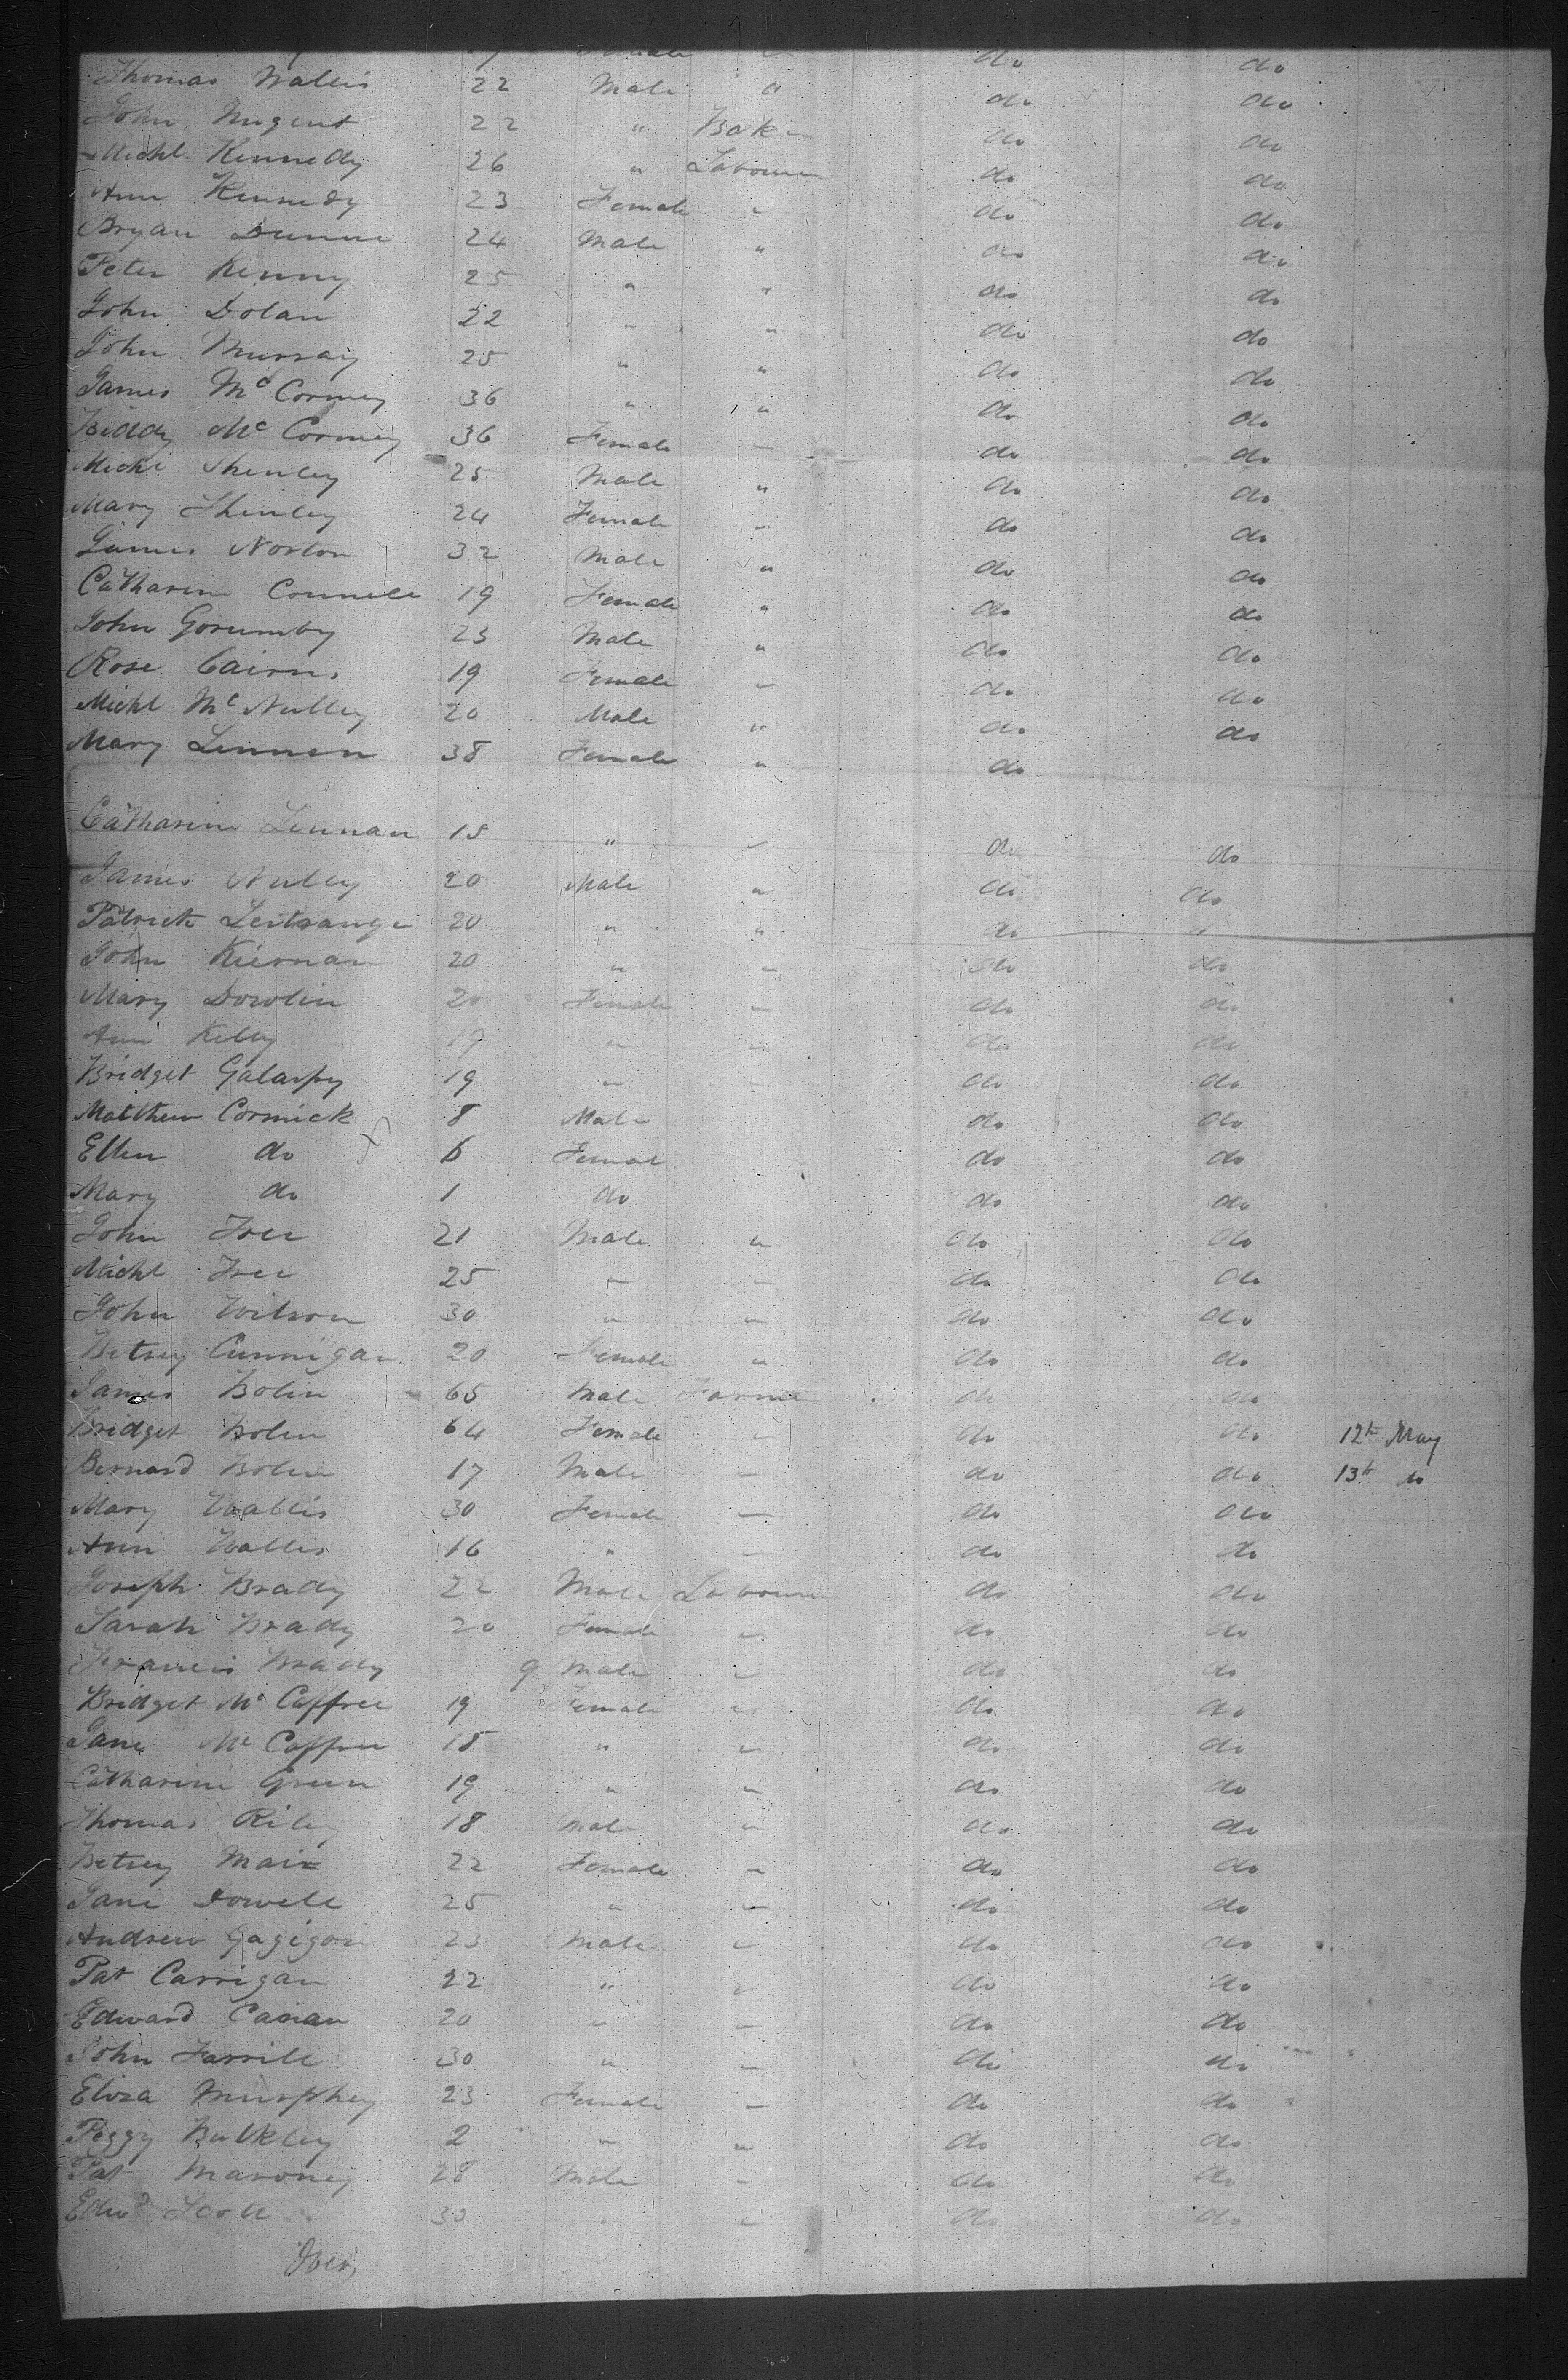 Female do do
Thomas Wallis 22 Male " do do
John Nugent 22 " Baker do do
Michl. Kennedy 26 " Labourer do do
Ann Kennedy 23 Female " do do
Bryan Dunne 24 Male " do do
Peter Kenny 25 " " do do
John Dolan 22 " " do do
John Murray 25 " " do do
James Mc Cormey 36 " " do do
Biddy Mc Cormey 36 Female " do do
Michl Shenley 25 Male " do do
Mary Shenley 24 Female " do do
James Norton 32 Male " do do
Catharine Connell 19 Female " do do
John Gorumby 23 Male " do do
Rose Cairns 19 Female " do do
Michl Mc Nulley 20 Male " do do
Mary Lennon 38 Female " do
Catharine Lennan 15 " " do do
James Nulley 20 Male " do do
Patrick Lestrange 20 " " do "
John Kiernan 20 " " do do
Mary Dowlin 20 Female " do do
Ann Kelly 19 " " do do
Bridget Galaspy 19 " " do do
Matthew Cormick 8 Male do do
Ellen do 6 Female do do
Mary do 1 do do do
John Free 21 Male " do do
Michl Free 25 " " do do
John Wilson 30 " " do do
Betsey Cunnigan 20 Female " do do
James Bolin 65 Male Farmer do do
Bridget Bolin 64 Female " do do 12th May
Bernard Bolin 17 Male " do do 13th do
Mary Wallis 30 Female " do do
Ann Wallis 16 " " do do
Joseph Brady 22 Male Labourer do do
Sarah Brady 20 Female " do do
Francis Brady 9 Male " do do
Bridget Mc Caffree 19 Female " do do
Jane Mc Caffree 18 " " do do
Catharine Green 19 " " do do
Thomas Riley 18 Male " do do
Betsey Mair 22 Female " do do
Jane Dowell 25 " " do do
Andrew Gagigon 23 Male " do do
Pat Carrigan 22 " " do do
Edward Casian 20 " " do do
John Farrile 30 " " do do
Eliza Murphey 23 Female " do do
Peggy Bulkley 2 " " do do
Pat Maroney 28 Male " do do
Edwd Scott 30 " " do do
Over,